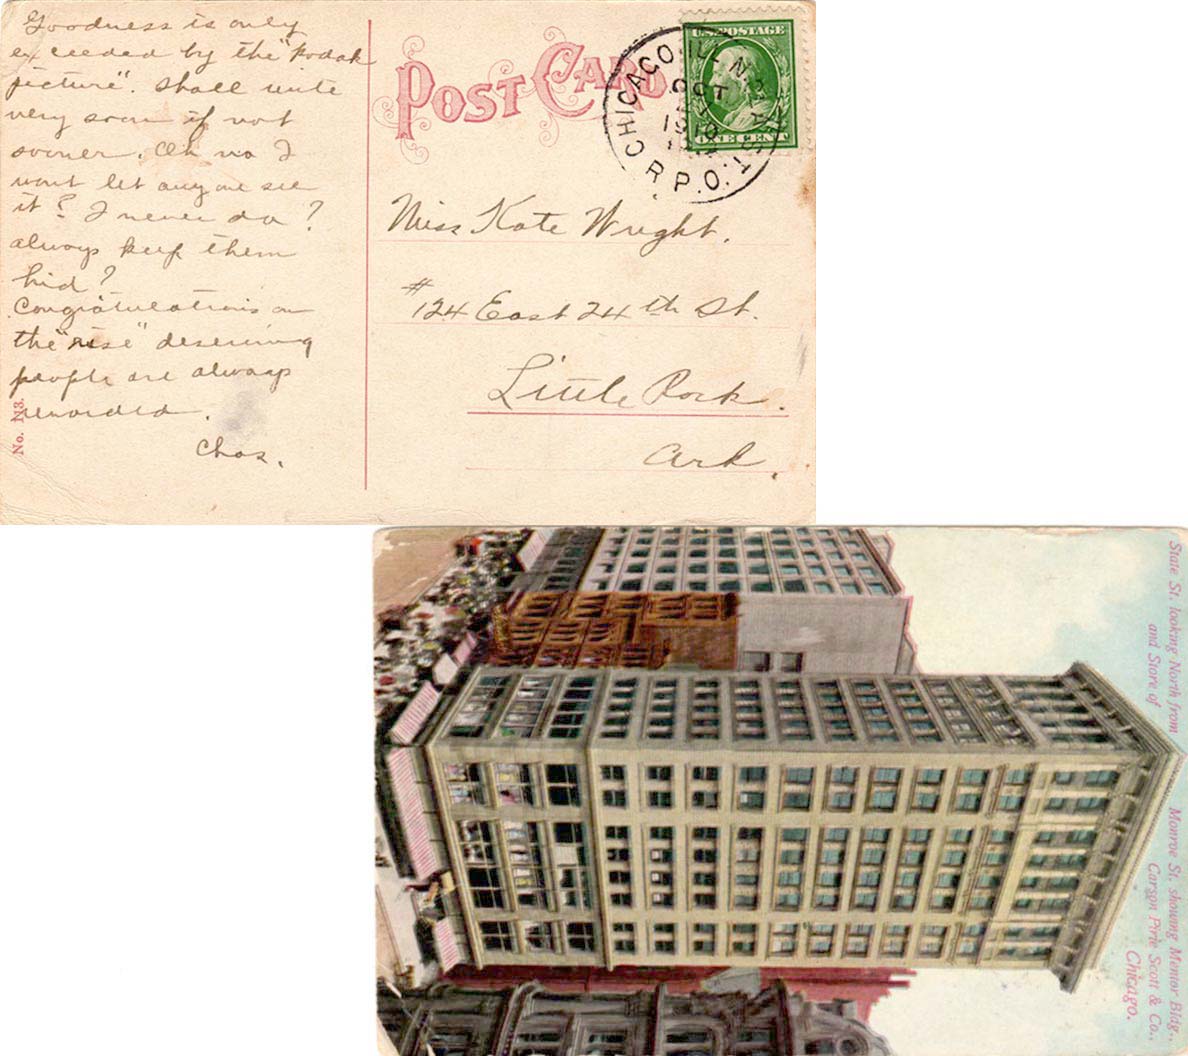 Goodness is only
exceeded by the "Kodak
picture". Shall write
very soon if not
sooner. Oh no I
wont let any one see
it? I never do?
always keep them
hid?
Congratulations on
the "rise" deserving
people are always
rewarded.
Chas.
No. 113.
POST CARD
U.S. POSTAGE
ONE CENT
CHICAGO, ILL. N.P.A. ST.
OCT
1910
R.P.O.
Miss Kate Wright.
#124 East 24th St.
Little Rock.
Ark.
State St. looking North from Monroe St. showing Mentor Bldg.,
and Store of Carson Pirie Scott & Co.,
Chicago.